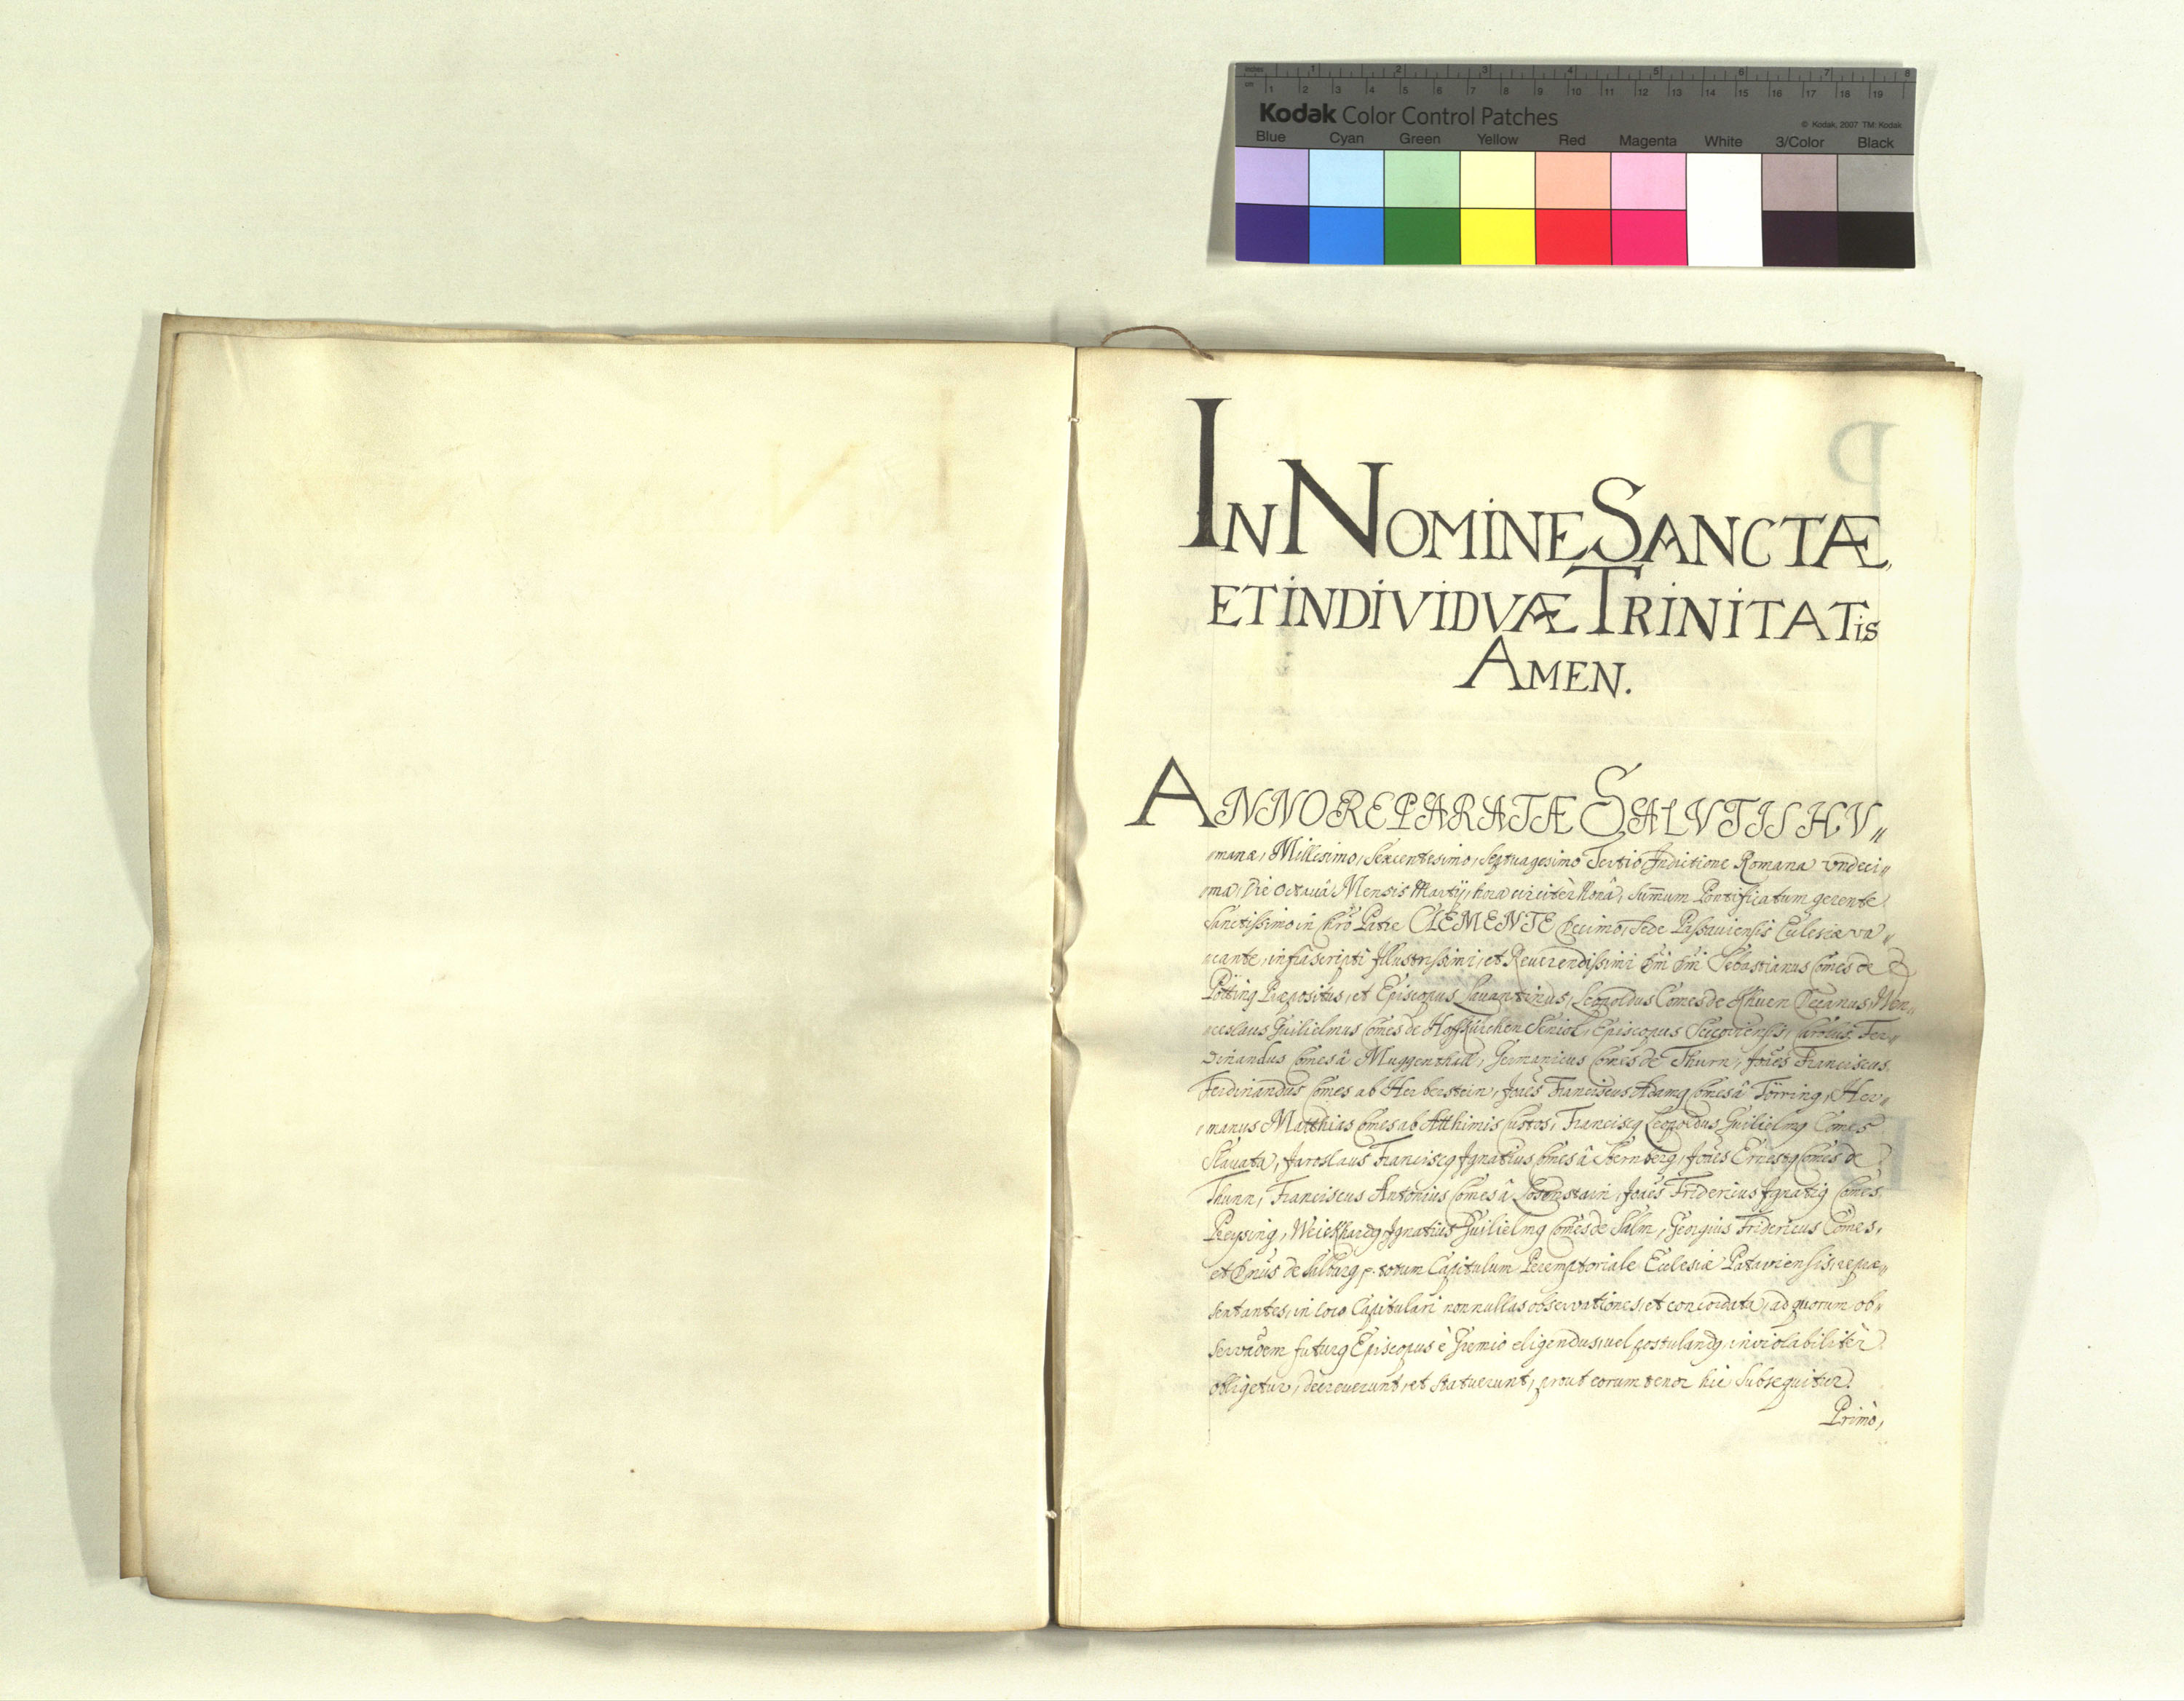 inches 1 2 3 4 5 6 7 8
cm 1 2 3 4 5 6 7 8 9 10 11 12 13 14 15 16 17 18 19
Kodak Color Control Patches
© Kodak, 2007 TM: Kodak
Blue Cyan Green Yellow Red Magenta White 3/Color Black
IN NOMINE SANCTÆ,
ET INDIVIDVÆ TRINITATis
AMEN.
ANNO REPARATÆ SALVTIS HV„
„manæ, Millesimo, Sexcentesimo, Septuagesimo Tertio Indictione Romana vndeci„
„ma, Die octauâ Mensis Martij, hora circitèr Nonâ, Sum̃um Pontificatum gerente
Sanctissimo in Chr̃o Patre CLEMENTE Decimo, Sede Passauiensis Ecclesiæ va„
„cante, infrascripti Jllustrissimi, et Reuerendissimi Dn̄i Dn̄i Sebastianus Comes de
Pötting Præpositus, et Episcopus Lauantinus, Leopoldus Comes de Khüen Decanus, Wen„
„ceslaus Guilielmus Comes de Hoffkürchen Senior, Episcopus Seccoviensis, Carolus Fer„
dinandus Comes â Muggenthall, Germanicus Comes de Thurn, Joães Franciscus
Ferdinandus Comes ab Herberstein, Joães Franciscus Adamg Comes â Törring, Her„
„manus Matthias Comes ab Atthimis Custos, Franciscg Leopoldus Guilielmg Comes
Slavata, Jaroslaus Franciscg Jgnatius Comes â Sternberg, Joães Ernestg Comes de
Thunn, Franciscus Antonius Comes â Losenstain, Joães Fridericus Jgnatig Comes
Preysing, Weickhardg Jgnatius Guilielmg Comes de Salm, Georgius Fridericus Comes,
et Dn̄us de Salburg p. totum Capitulum Peremptoriale Ecclesiæ Patauiensis, repræ„
sentantes, in loco Capitulari nonnullas observationes, et concordata, ad quorum ob„
servãõem futurg Episcopus è Gremio eligendus, uel postulandg, inviolabilitèr
obligetur, decreuerunt, et statuerunt, prout eorum tenor hic Subsequitur.
Primò,